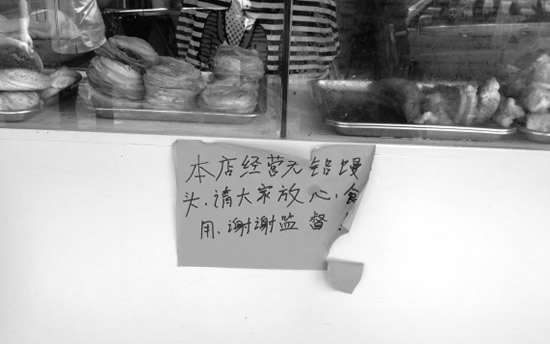 本店经营无铝馒
头、请大家放心、食
用、谢谢监督！